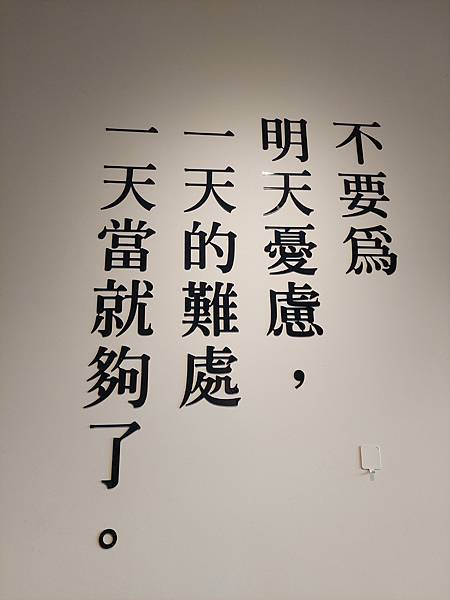 不要爲
明天憂慮，
一天的難處
一天當就夠了。